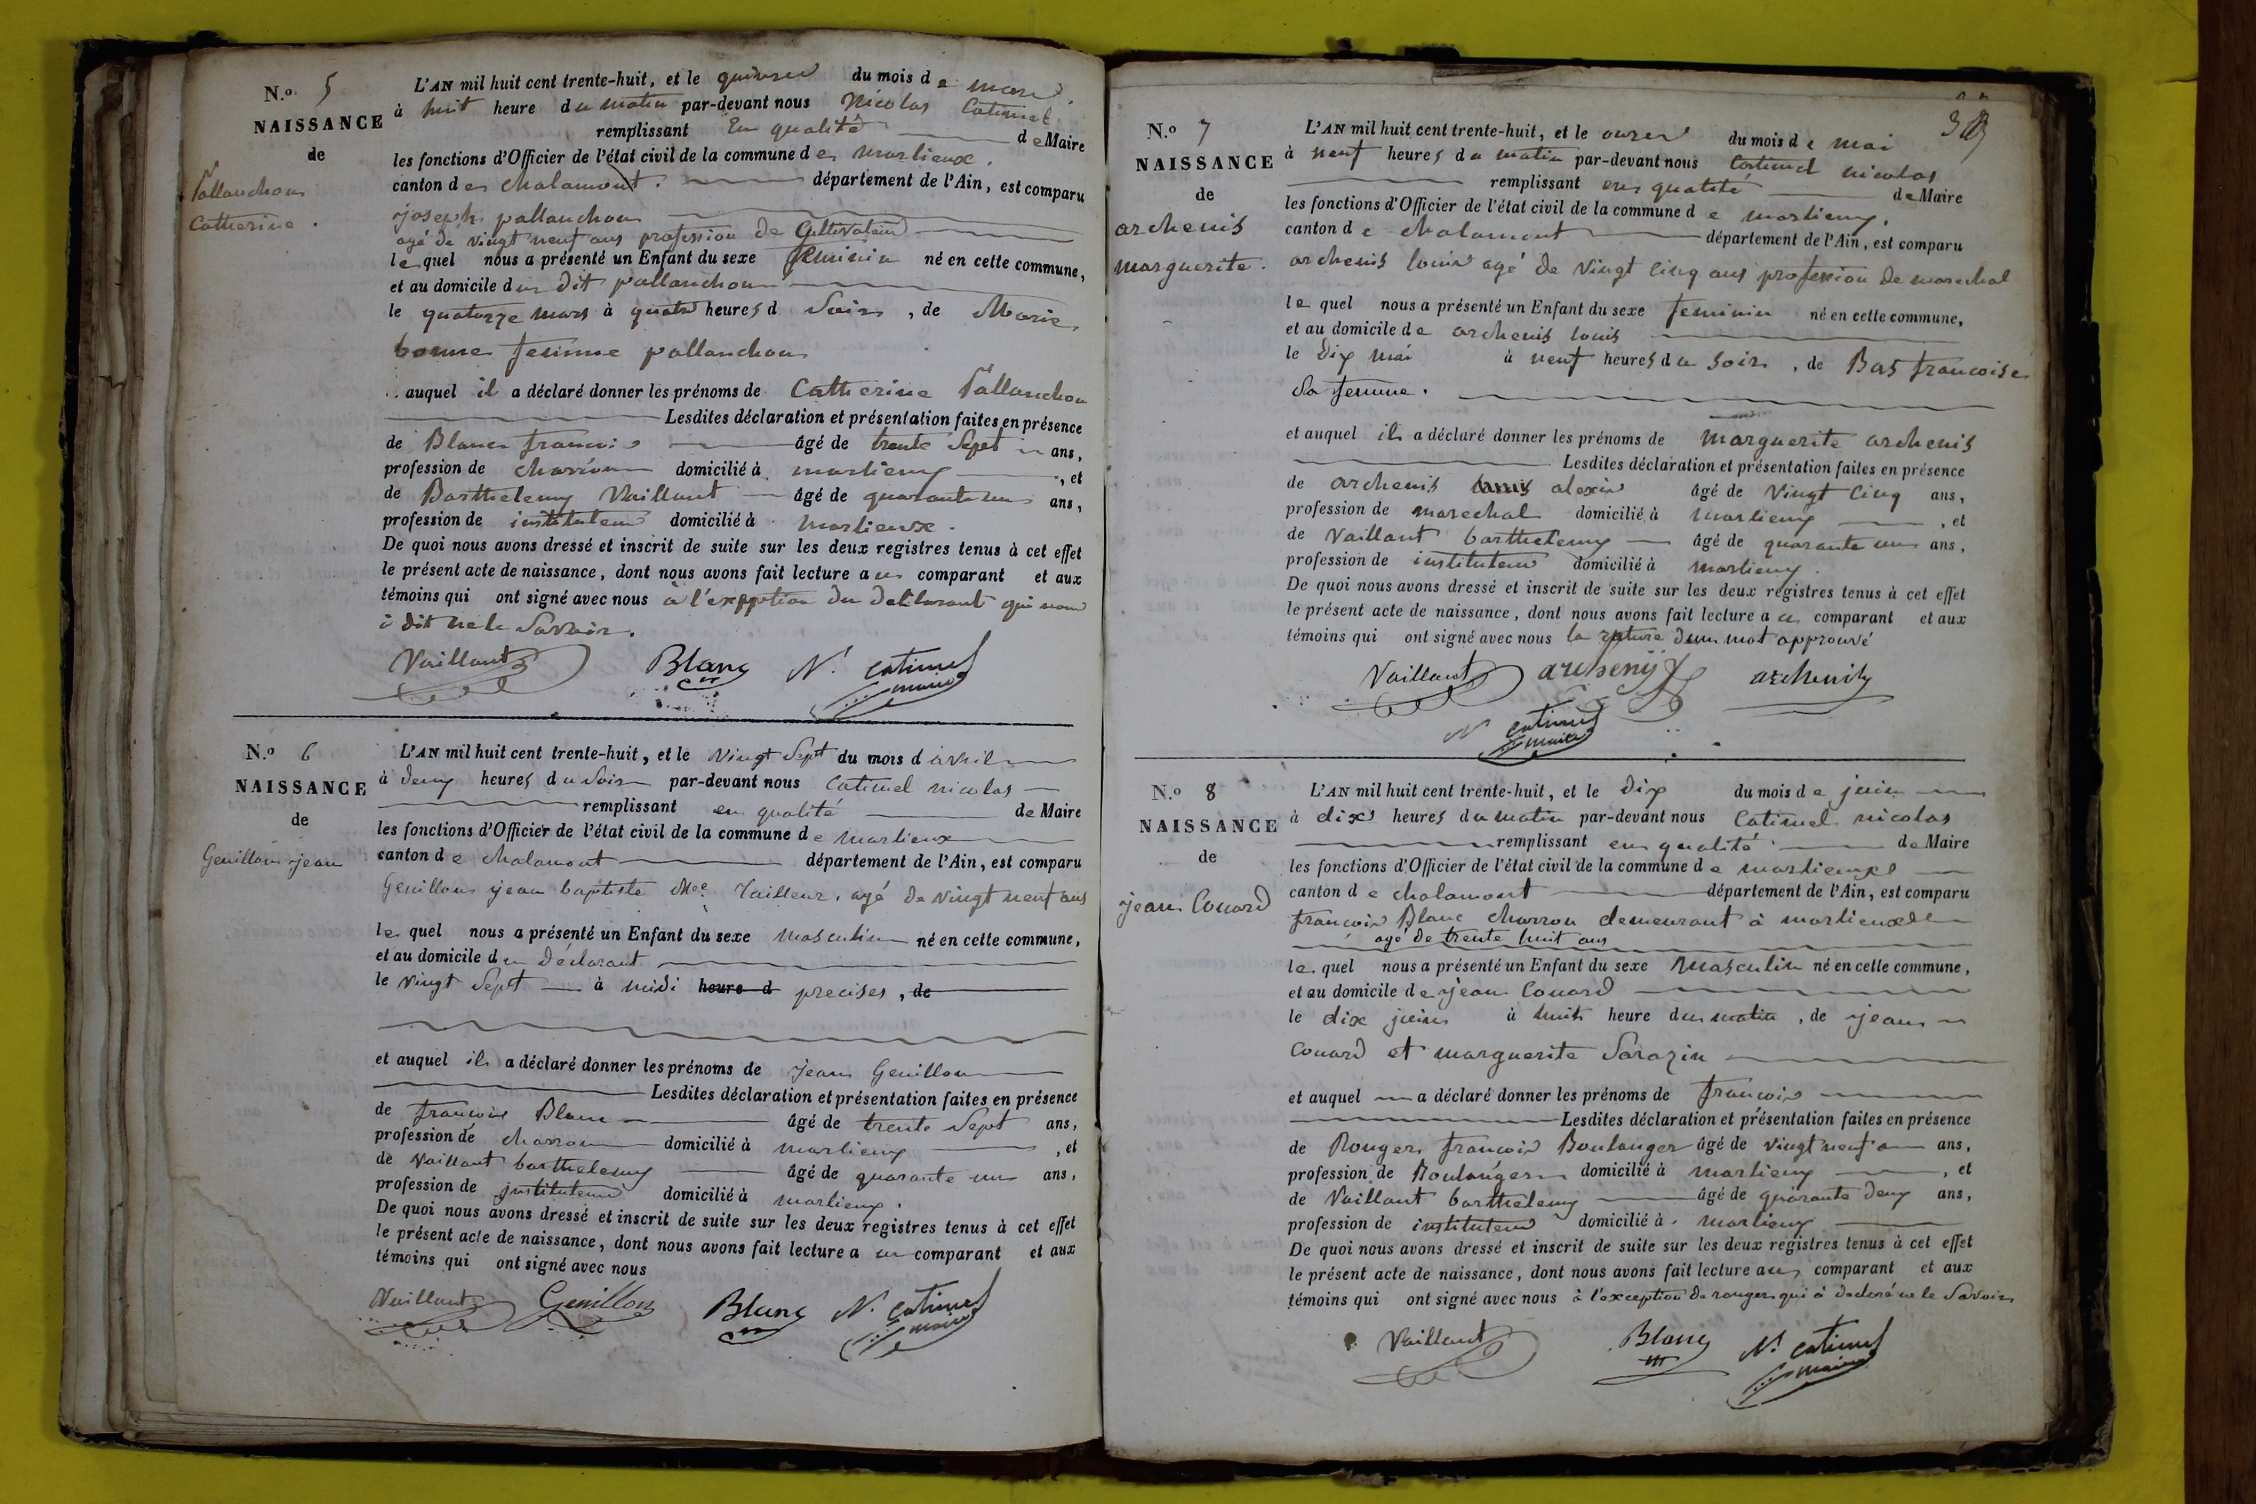 N.o 5
NAISSANCE
de
Pallanchon
Catherine.
L'AN mil huit cent trente-huit, et le quinze du mois de mars
à huit heure du matin par-devant nous Nicolas Catimel
remplissant En qualité de Maire
les fonctions d'Officier de l'état civil de la commune de marlieux.
canton de chalamont. département de l'Ain, est comparu
joseph pallanchon
agé de vingt neuf ans profession de Cultivateur
lequel nous a présenté un Enfant du sexe féminin né en cette commune,
et au domicile du dit pallanchon
le quatorze mars à quatre heures d Soir, de Marie
bonne femme pallanchon
auquel il a déclaré donner les prénoms de Catherine Pallanchon
Lesdites déclaration et présentation faites en présence
de Blanc francois âgé de trente Sept ans,
profession de charron domicilié à marlieux, et
de Barthelemy Vaillant âgé de quarante un ans,
profession de instituteur domicilié à marlieux.
De quoi nous avons dressé et inscrit de suite sur les deux registres tenus à cet effet
le présent acte de naissance, dont nous avons fait lecture au comparant et aux
témoins qui ont signé avec nous à l'exception du declarant qui nous
à dit ne le Savoir.
Vaillant Blanc N. Catimel
maire
N.o 6
NAISSANCE
de
Genillon jean
L'AN mil huit cent trente-huit, et le vingt Sept du mois d avril
à deux heures du Soir par-devant nous Catimel nicolas
remplissant en qualité de Maire
les fonctions d'Officier de l'état civil de la commune de marlieux
canton de chalamont département de l'Ain, est comparu
Genillon jean baptiste Me. Tailleur, agé de vingt neuf ans
lequel nous a présenté un Enfant du sexe masculin né en cette commune,
et au domicile du déclarant
le vingt Sept à midi heure d precises, de
et auquel il a déclaré donner les prénoms de Jean Genillon
Lesdites déclaration et présentation faites en présence
de francois Blanc âgé de trente Sept ans,
profession de charron domicilié à marlieux, et
de Vaillant barthelemy âgé de quarante un ans,
profession de instituteur domicilié à marlieux.
De quoi nous avons dressé et inscrit de suite sur les deux registres tenus à cet effet
le présent acte de naissance, dont nous avons fait lecture au comparant et aux
témoins qui ont signé avec nous
Vaillant Genillon Blanc N. Catimel
maire
N.o 7
NAISSANCE
de
archenis
marguerite.
L'AN mil huit cent trente-huit, et le onze du mois de mai
à neuf heures du matin par-devant nous Catimel nicolas
remplissant en qualité de Maire
les fonctions d'Officier de l'état civil de la commune de marlieux.
canton de chalamont département de l'Ain, est comparu
archenis louis agé de vingt cinq ans profession de marechal
lequel nous a présenté un Enfant du sexe feminin né en cette commune,
et au domicile de archenis louis
le dix mai à neuf heures du soir, de Bas francoise
Sa femme.
et auquel il a déclaré donner les prénoms de marguerite archenis
Lesdites déclaration et présentation faites en présence
de archenis louis alexis âgé de vingt cinq ans,
profession de marechal domicilié à marlieux, et
de Vaillant barthelemy âgé de quarante un ans,
profession de instituteur domicilié à marlieux.
De quoi nous avons dressé et inscrit de suite sur les deux registres tenus à cet effet
le présent acte de naissance, dont nous avons fait lecture au comparant et aux
témoins qui ont signé avec nous la rature dun mot approuvé
Vaillant archenis archenis
N Catimel
maire
N.o 8
NAISSANCE
de
jean Couard
L'AN mil huit cent trente-huit, et le dix du mois de juin
à dix heures du matin par-devant nous Catimel nicolas
remplissant en qualité de Maire
les fonctions d'Officier de l'état civil de la commune de marlieux
canton de chalamont département de l'Ain, est comparu
francois Blanc charron demeurant à marlieux
agé de trente huit ans
lequel nous a présenté un Enfant du sexe masculin né en cette commune,
et au domicile de jean Couard
le dix juin à huit heure du matin, de jean
Couard et marguerite Sarazin
et auquel a déclaré donner les prénoms de francois
Lesdites déclaration et présentation faites en présence
de Rouger francois Boulanger âgé de vingt neuf ans,
profession de Boulanger domicilié à marlieux, et
de Vaillant barthelemy âgé de quarante deux ans,
profession de instituteur domicilié à marlieux
De quoi nous avons dressé et inscrit de suite sur les deux registres tenus à cet effet
le présent acte de naissance, dont nous avons fait lecture au comparant et aux
témoins qui ont signé avec nous à l'exception de rouger qui à declaré ne le Savoir
Vaillant Blanc N. Catimel
maire